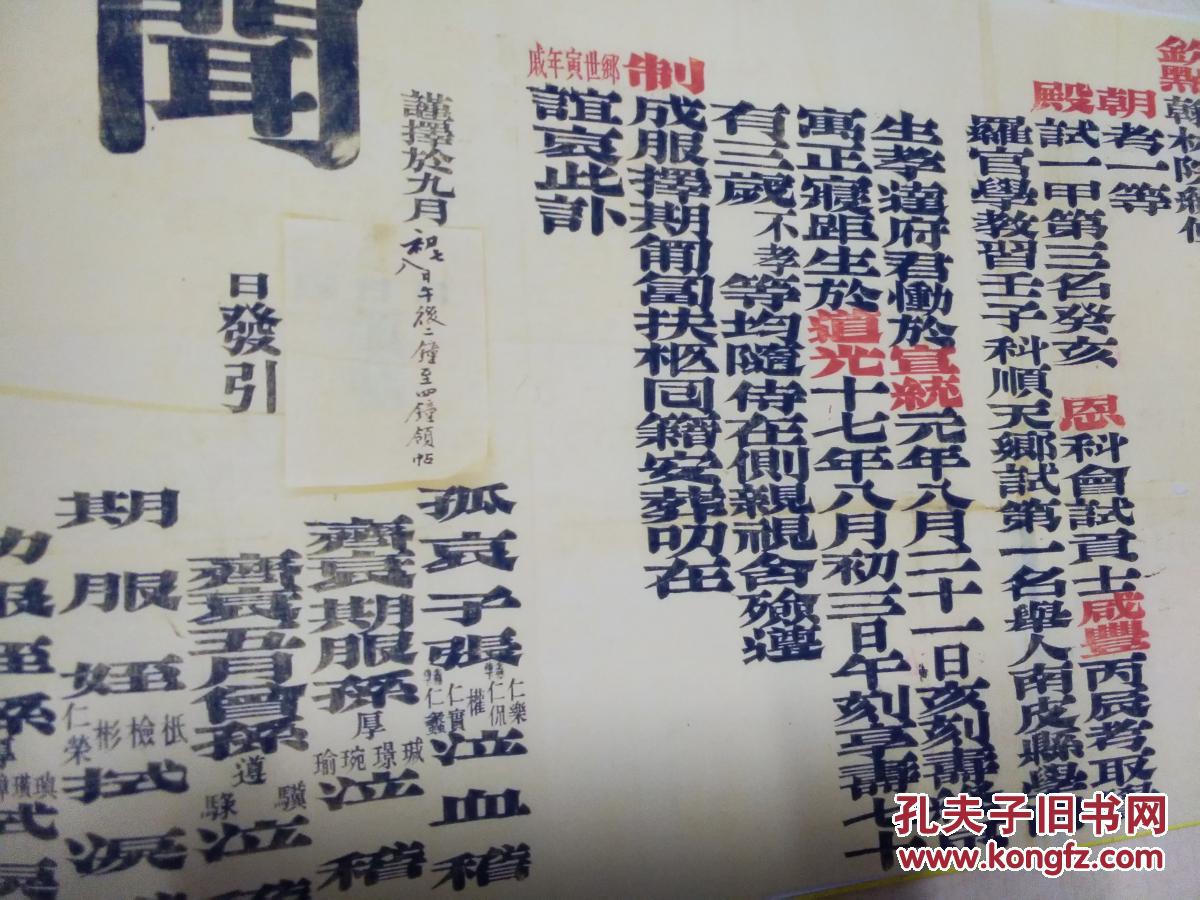 欽點翰林院編修
朝考一等
殿試一甲第三名癸亥 恩科會試貢士咸豐丙辰考取覺
羅官學教習壬子科順天鄉試第一名舉人南皮縣學
生孝達府君慟於宣統元年八月二十一日亥刻壽終京
寓正寢距生於道光十七年八月初三日午刻享壽七十
有三歲不孝等均隨侍在側親視含殮遵
制成服擇期匍匐扶柩回籍安葬叨在
鄉世寅年戚
誼哀此訃
聞
謹擇於九月
初七八日午後二鐘至四鐘領帖
日發引
孤哀子張仁樂 仁侃 權 仁實 仁蠡 泣血稽
齊衰期服孫厚瑊 璟 琬 瑜 泣稽
齊衰五月曾孫遵驥 騄 泣稽
期服姪仁榮 彬 檢 柢 拭淚
功服姪孫厚璋 瓚 式淚
孔夫子旧书网
www.kongfz.com